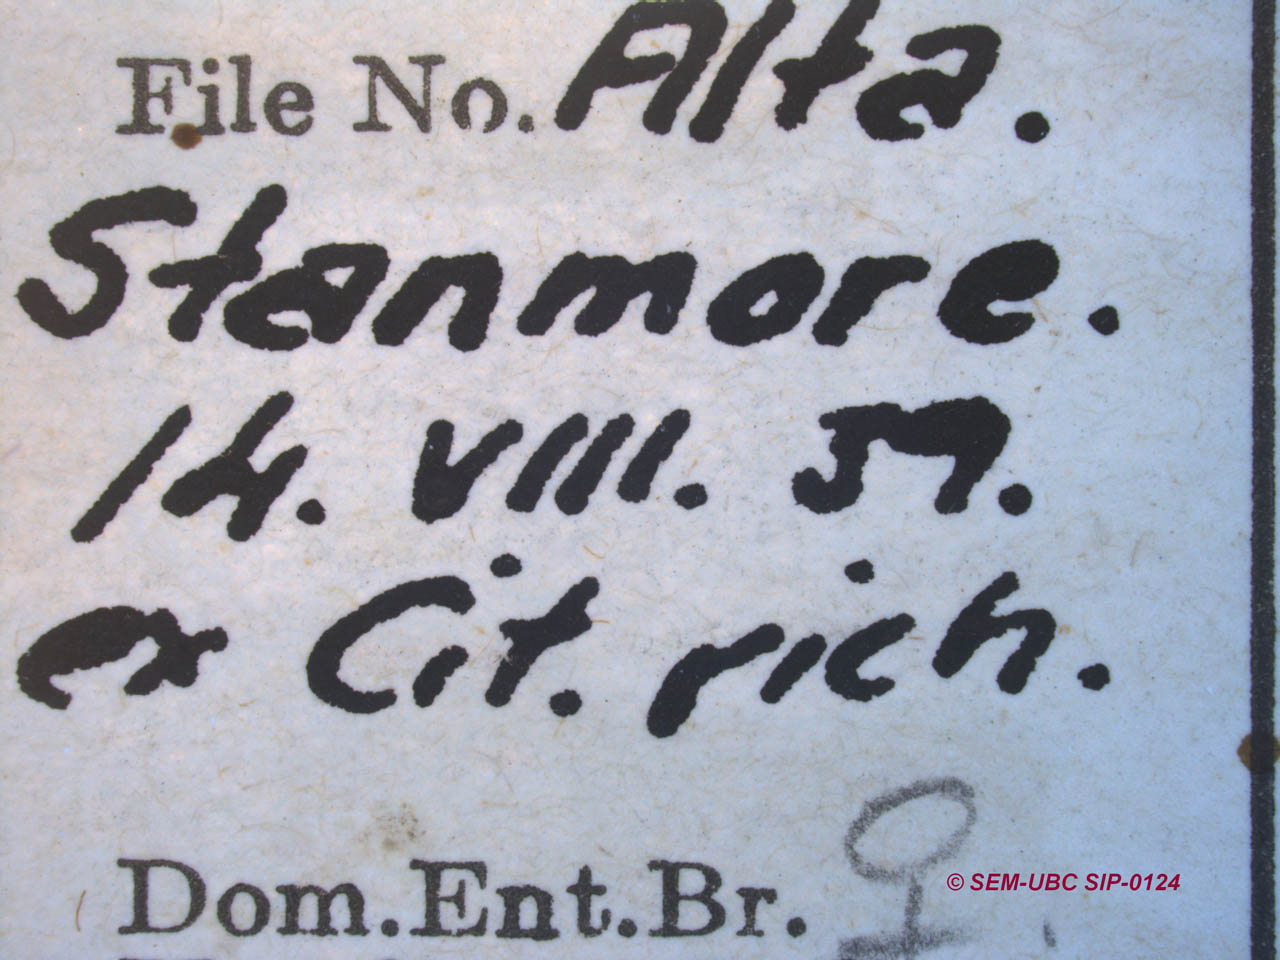 File No. Alta.
Stanmore.
14. VIII. 57.
ex Cit. rich.
♀
Dom.Ent.Br.
© SEM-UBC SIP-0124